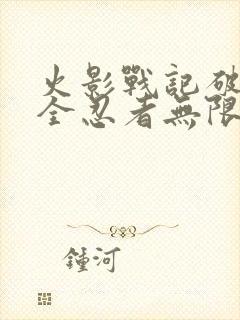 火影戰記破
全忍者無限
鍾河